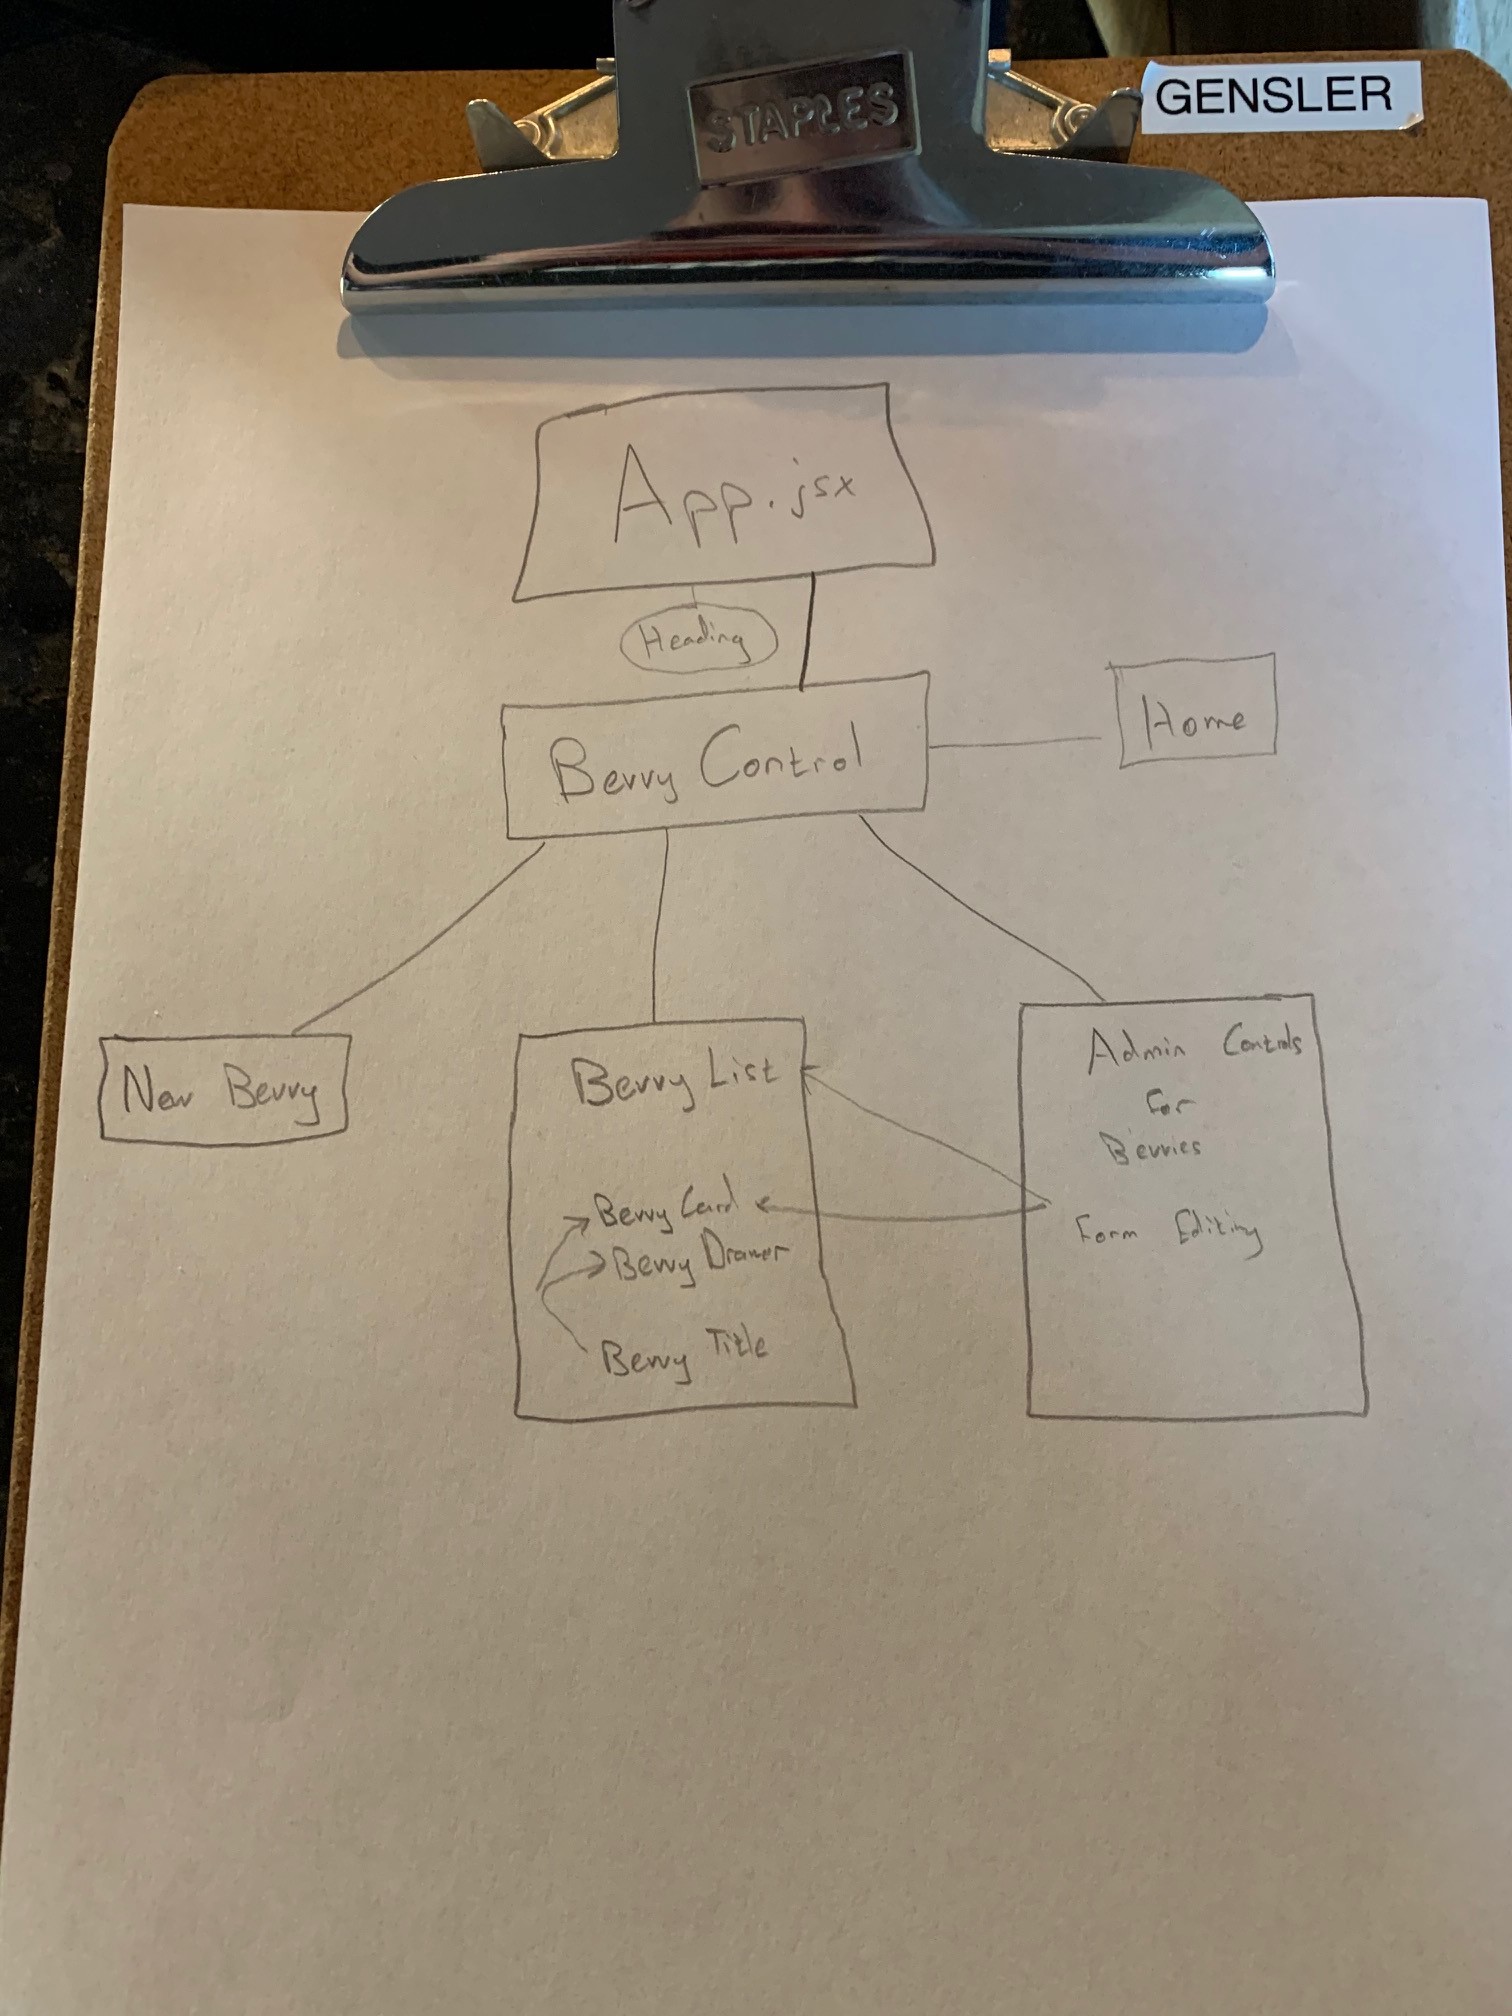 STAPLES
GENSLER
App.jsx
Heading
Berry Control
Home
New Berry
Berry List
Berry Card
Berry Drawer
Berry Title
Admin Controls
For
Berries
Form Editing